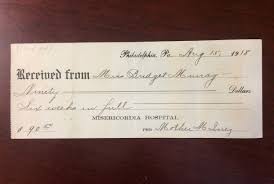 Philadelphia, Pa Aug 15, 1918
Received from Miss Bridget Murray
Ninety Dollars
Six weeks in full
MISERICORDIA HOSPITAL
$ 90.00 PER Mother M.